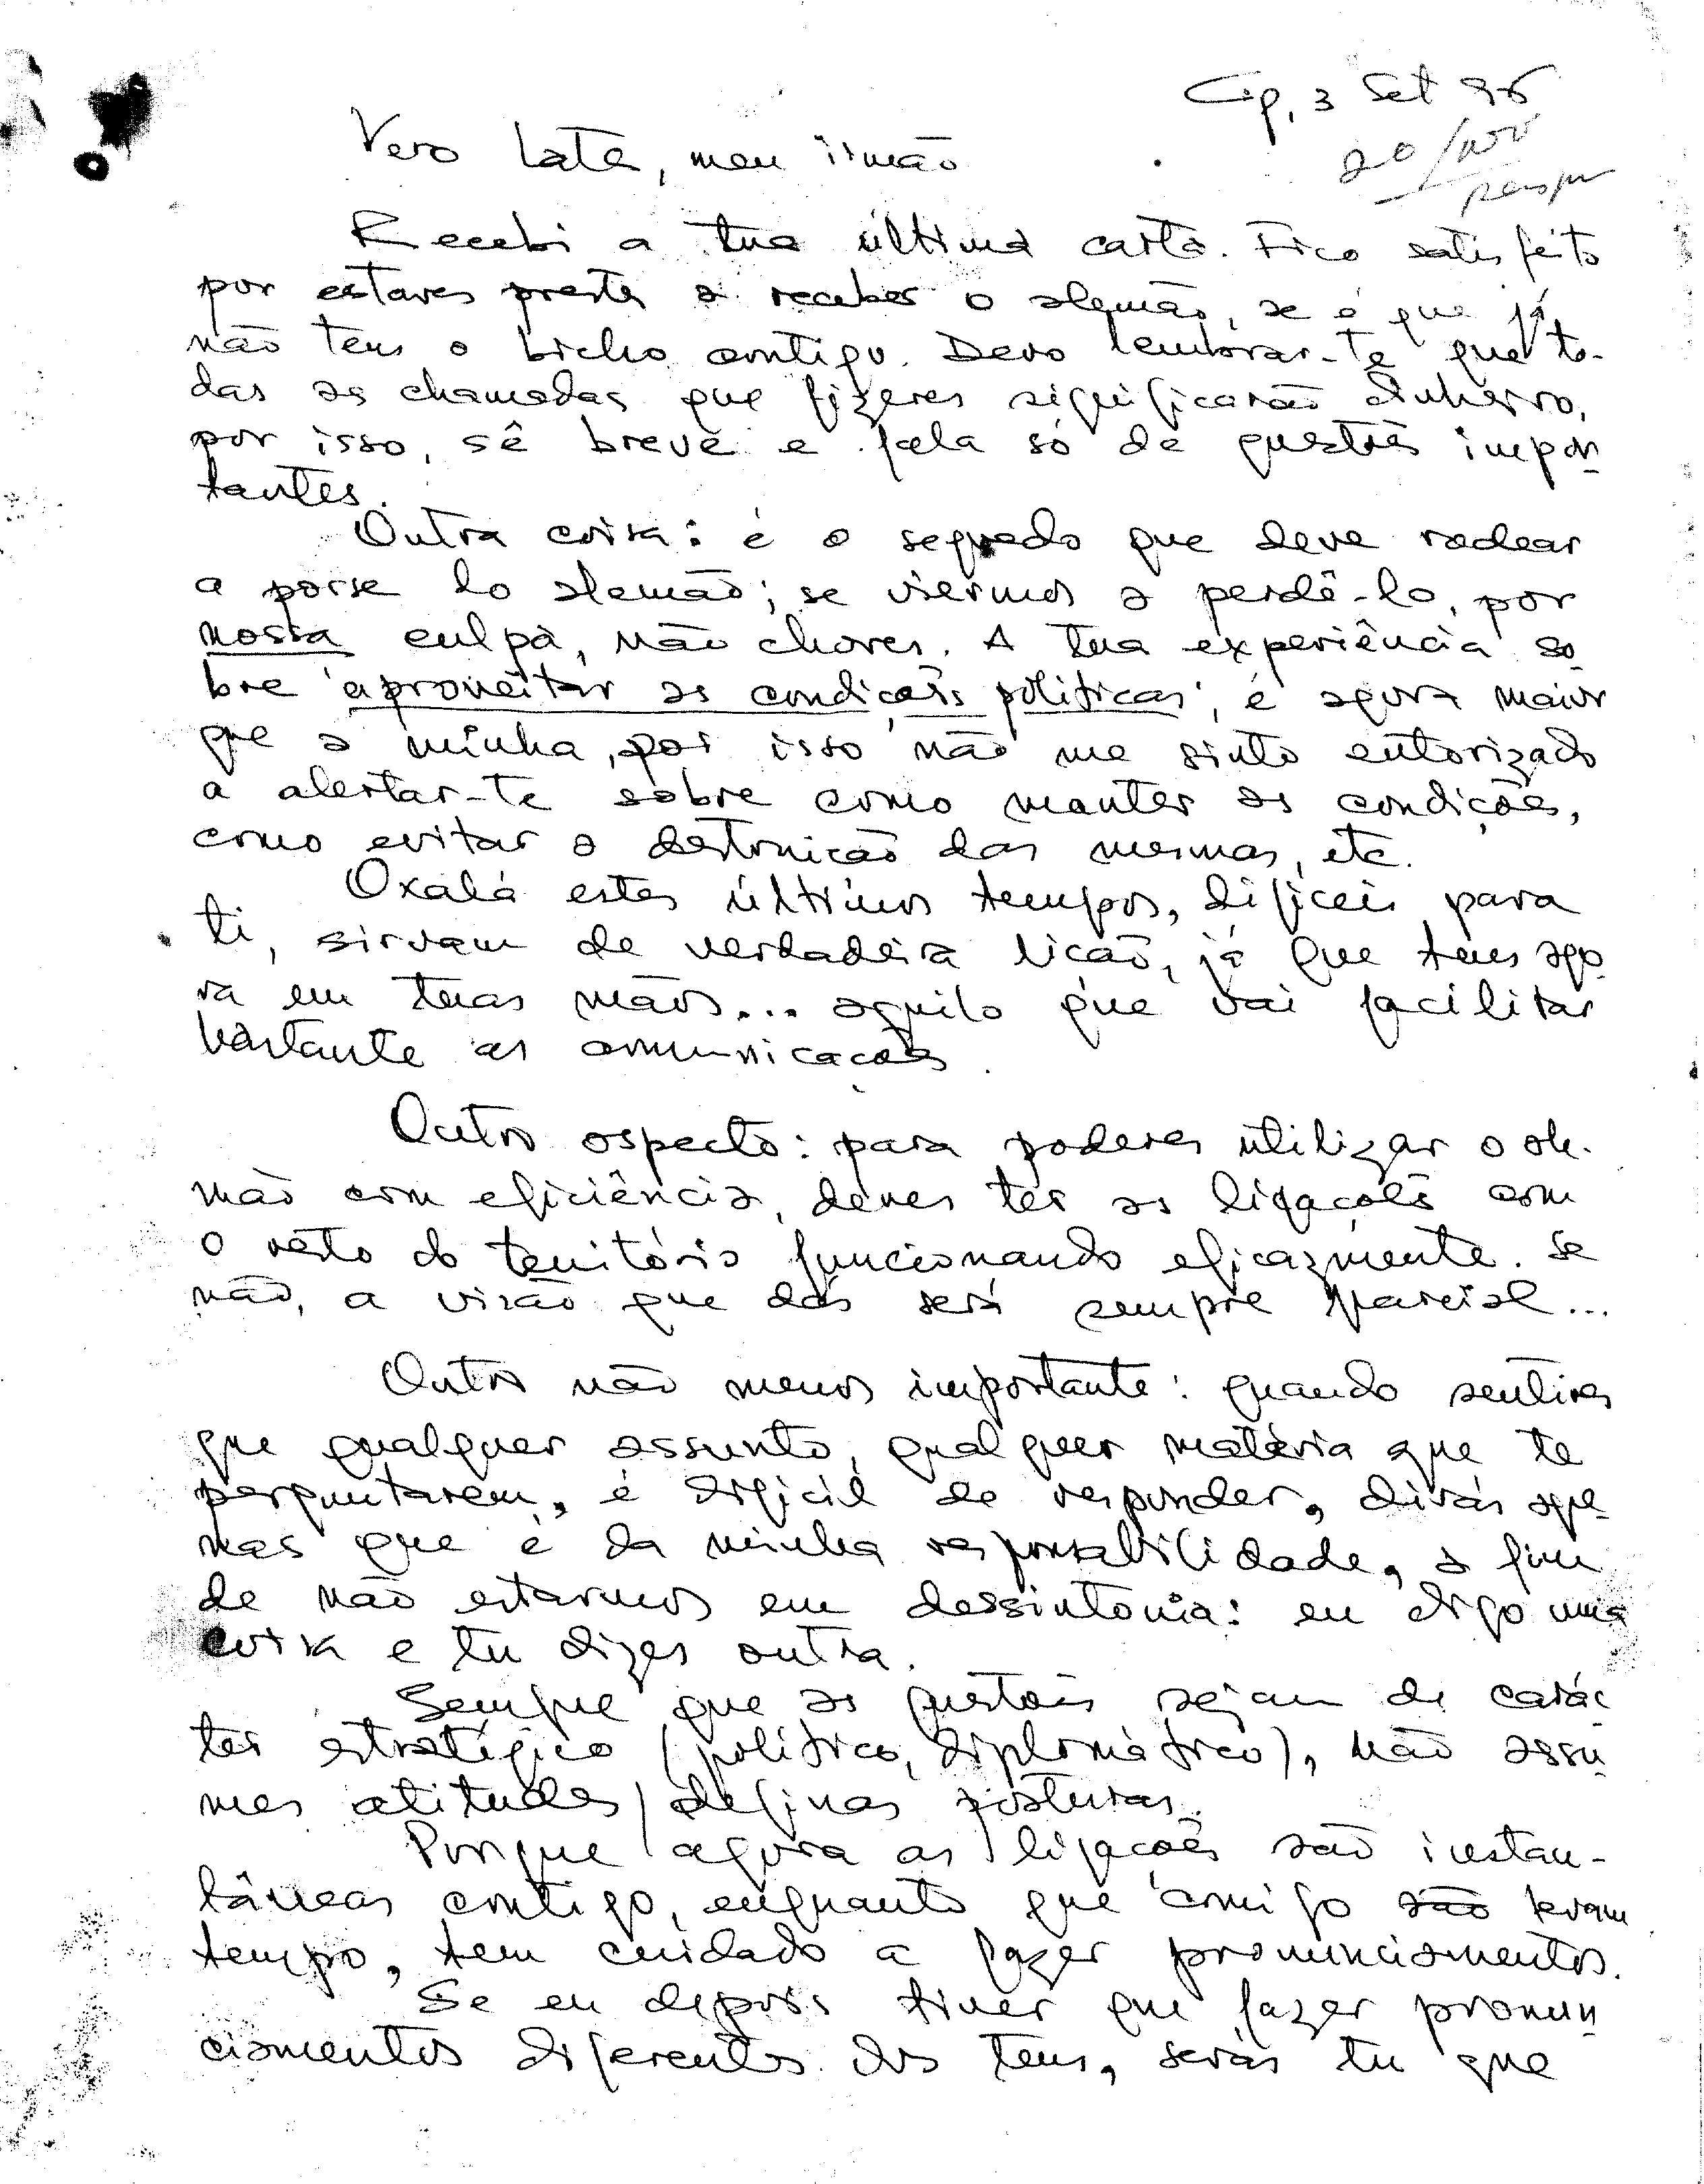 Cip, 3 Set 96
20/nov
Vero Lata, meu irmão
Recebi a tua última carta. Fico satisfeito
por estares prestes a receber o alemão, se é que já
não tens o bicho contigo. Devo lembrar-te que to-
das as chamadas que fizeres significarão dinheiro,
por isso, sê breve e fala só de questões impor-
tantes.
Outra coisa: é o segredo que deve rodear
a posse do alemão; se viermos a perdê-lo, por
nossa culpa, não chores. A tua experiência so-
bre 'aproveitar as condições políticas', é agora maior
que a minha, por isso não me sinto autorizado
a alertar-te sobre como manter as condições,
como evitar a destruição das mesmas, etc.
Oxalá estes últimos tempos, difíceis para
ti, sirvam de verdadeira lição, já que tens ago-
ra em tuas mãos... aquilo que vai facilitar
bastante as comunicações.
Outro aspecto: para poderes utilizar o ale-
mão com eficiência, deves ter as ligações com
o resto do território funcionando eficazmente. Se
não, a visão que dás será sempre parcial...
Outro não menos importante: quando sentires
que qualquer assunto, qualquer matéria que te
perguntarem, é difícil de responder, dirás ape-
nas que é da minha responsabilidade, a fim
de não estarmos em dessintonia: eu digo uma
coisa e tu dizes outra.
Sempre que as questões sejam de carác-
ter estratégico (político, diplomático), não assu-
mes atitudes/defines posturas.
Porque agora as ligações são instan-
tâneas contigo, enquanto que comigo são levam
tempo, tem cuidado a fazer pronunciamentos.
Se eu depois tiver que fazer pronun-
ciamentos diferentes dos teus, serás tu que